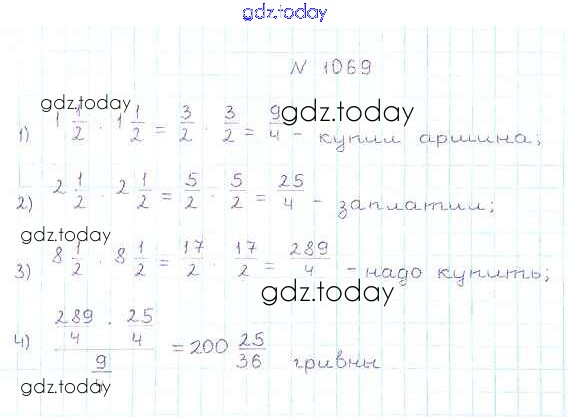 gdz.today
N 1069
gdz.today
gdz.today
1) 1 1/2 · 1 1/2 = 3/2 · 3/2 = 9/4 - купил аршина;
2) 2 1/2 · 2 1/2 = 5/2 · 5/2 = 25/4 - заплатил;
gdz.today
3) 8 1/2 · 8 1/2 = 17/2 · 17/2 = 289/4 - надо купить;
gdz.today
4) (289/4 · 25/4) / (9/4) = 200 25/36 гривны
gdz.today